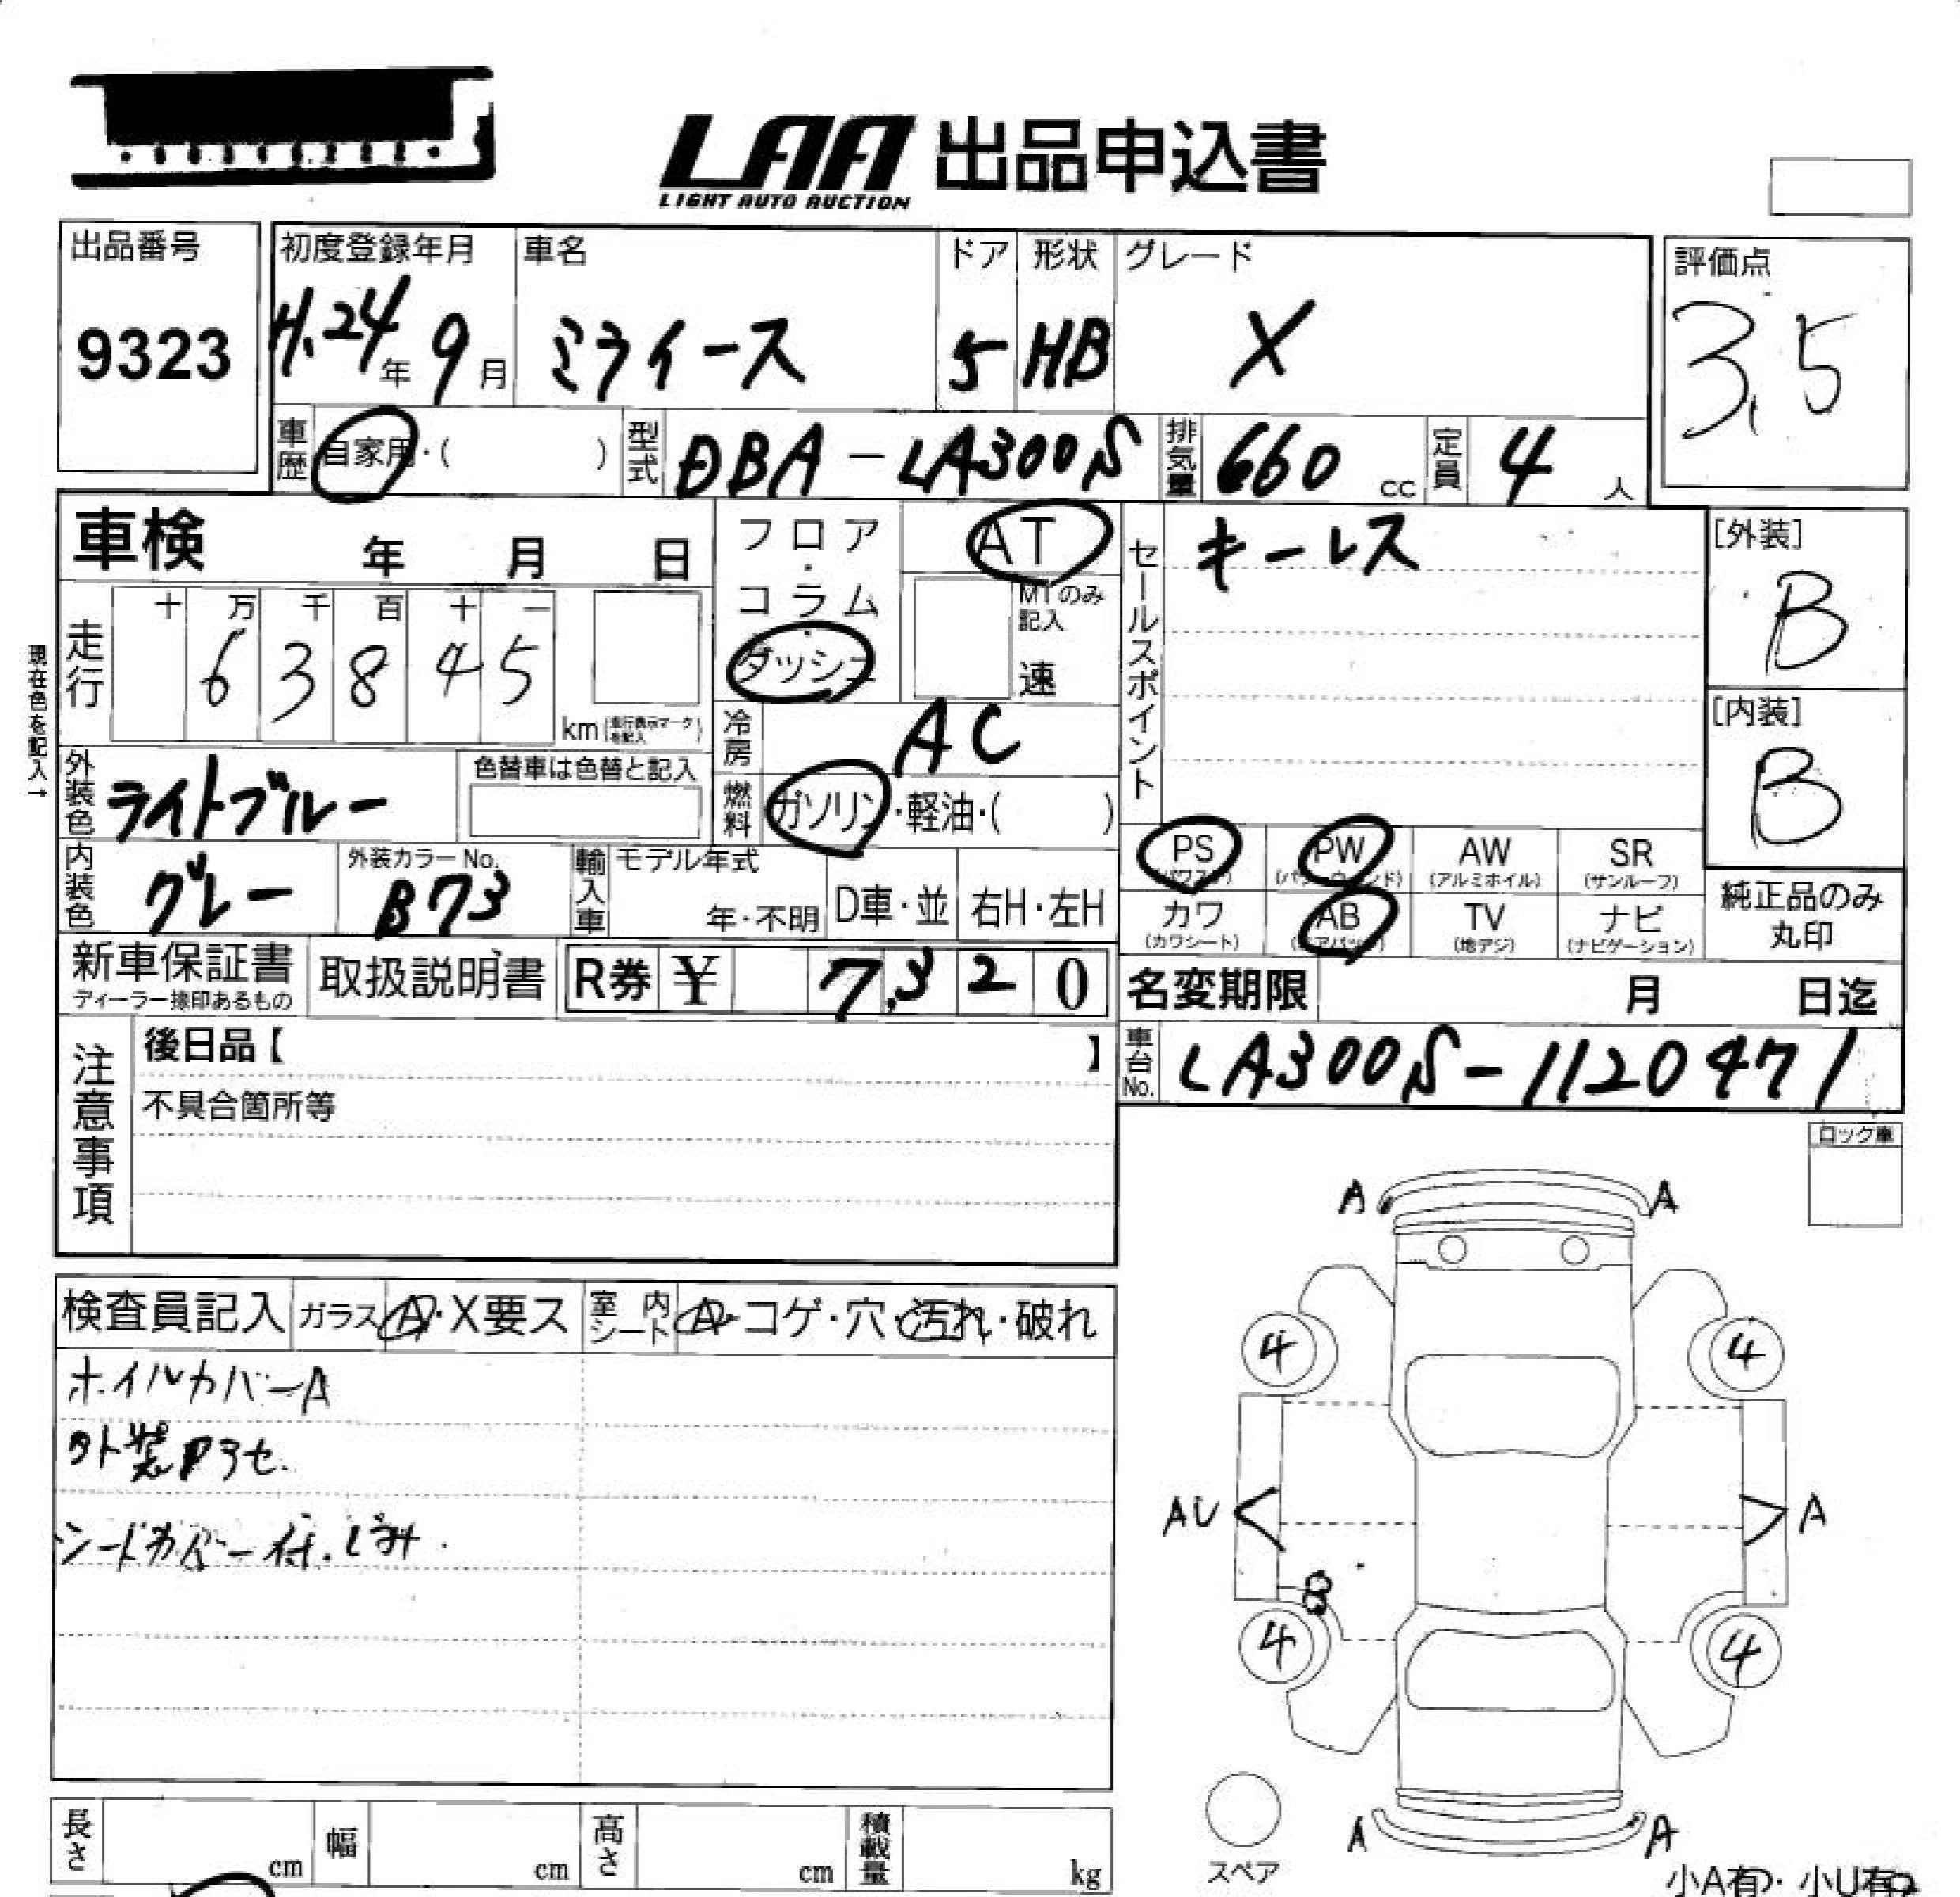 LAA 出品申込書
LIGHT AUTO AUCTION
出品番号 9323
初度登録年月 H.24年 9月
車名 ミライース
ドア 5
形状 HB
グレード X
評価点 3.5
車歴 自家用・( )
型式 DBA-LA300S
排気量 660 cc
定員 4 人
車検 年 月 日
フロア・コラム・ダッシュ
AT
MTのみ記入 速
セールスポイント キーレス
[外装] B
[内装] B
現在色を記入→
走行 十 万 千 百 十 一
6 3 8 4 5
km(走行表示マークを記入)
冷房 AC
外装色 ライトブルー
色替車は色替と記入
燃料 ガソリン・軽油・( )
内装色 グレー
外装カラーNo. B73
輸入車 モデル年式 年・不明 D車・並 右H・左H
PS (パワステ) PW (パワーウィンド) AW (アルミホイル) SR (サンルーフ)
カワ (カワシート) AB (エアバッグ) TV (地デジ) ナビ (ナビゲーション)
純正品のみ丸印
新車保証書 ディーラー捺印あるもの
取扱説明書
R券 ¥ 7,320
名変期限 月 日迄
車台No. LA300S-1120471
注意事項
後日品【 】
不具合箇所等
ロック車
検査員記入 ガラス A・X要ス 室内シート A・コゲ・穴・汚れ・破れ
ホイルカバーA
外装ヤケ
シートカバー付.しみ.
A A
4 4
AU A
B
4 4
A A
スペア
長さ cm 幅 cm 高さ cm 積載量 kg
小A有・小U有